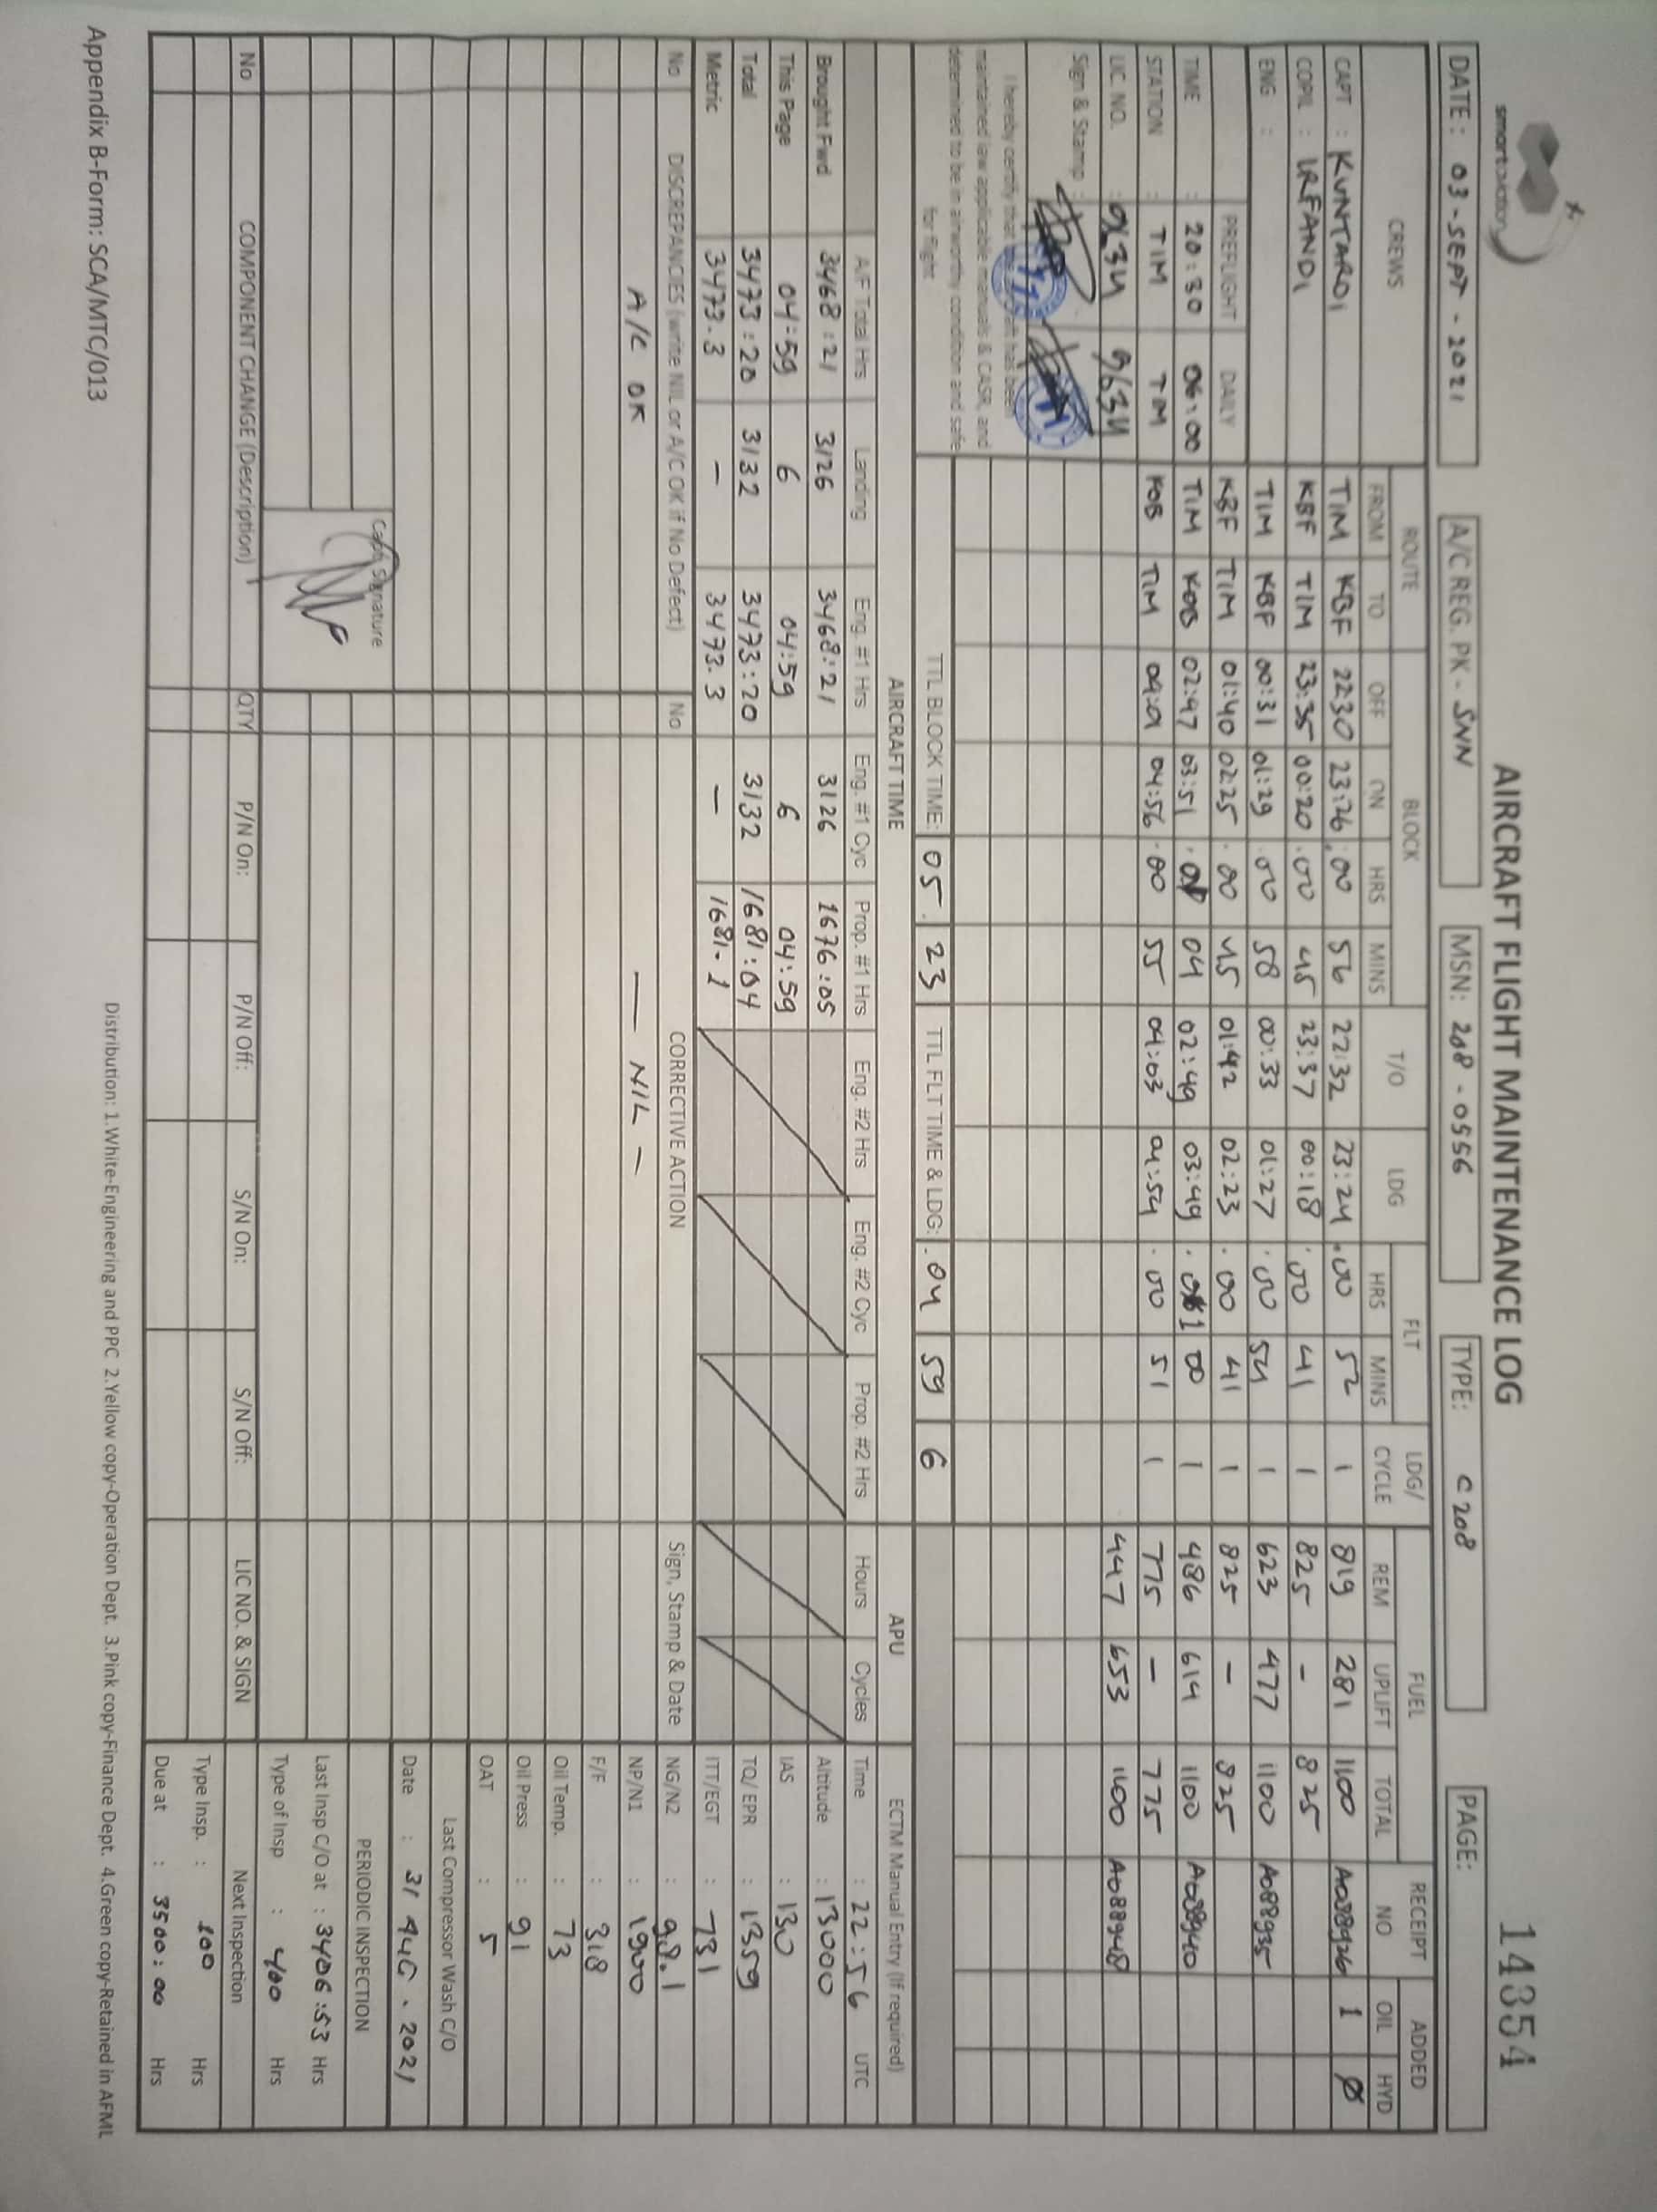 smartaviation
AIRCRAFT FLIGHT MAINTENANCE LOG
14354
DATE: 03-SEPT-2021 A/C REG. PK - SNN MSN: 208-0556 TYPE: C208 PAGE:
CREWS ROUTE BLOCK T/O LDG FLT LDG/ CYCLE FUEL RECEIPT NO ADDED
FROM TO OFF ON HRS MINS HRS MINS REM UPLIFT TOTAL OIL HYD
CAPT : KUNTARDI TIM KBF 22:30 23:26 .00 56 22:32 23:24 .00 52 1 819 281 1100 A088926 1 Ø
COPIL : IRFANDI KBF TIM 23:35 00:20 .00 45 23:37 00:18 .00 41 1 825 - 825
ENG : TIM KBF 00:31 01:29 .00 58 00:33 01:27 .00 54 1 623 477 1100 A088935
PREFLIGHT DAILY KBF TIM 01:40 02:25 .00 45 01:42 02:23 .00 41 1 825 - 825
TIME : 20:30 06:00 TIM KOB 02:47 03:51 .01 04 02:49 03:49 .01 00 1 486 614 1100 A088940
STATION : TIM TIM KOB TIM 04:01 04:56 .00 55 04:03 04:54 .00 51 1 775 - 775
LIC. NO. : 9634 9634 447 653 1100 A088948
Sign & Stamp :
I hereby certify that the aircraft has been
maintained iaw applicable manuals & CASR, and
determined to be in airworthy condition and safe
for flight
TTL BLOCK TIME: 05. 23 TTL FLT TIME & LDG: .04 59 6
AIRCRAFT TIME APU ECTM Manual Entry (If required)
A/F Total Hrs Landing Eng. #1 Hrs Eng. #1 Cyc Prop. #1 Hrs Eng. #2 Hrs Eng. #2 Cyc Prop. #2 Hrs Hours Cycles Time : 22:56 UTC
Brought Fwd 3468:21 3126 3468:21 3126 1676:05 Altitude : 13000
This Page 04:59 6 04:59 6 04:59 IAS : 130
Total 3473:20 3132 3473:20 3132 1681:04 TQ/ EPR : 1359
Metric 3473.3 - 3473.3 - 1681.1 ITT/EGT : 731
No DISCREPANCIES (write NIL or A/C OK if No Defect) No CORRECTIVE ACTION Sign, Stamp & Date NG/N2 : 98.1
A/C OK — NIL — NP/N1 : 1900
F/F : 318
Oil Temp. : 73
Oil Press : 91
OAT : 5
Last Compressor Wash C/O
Date : 31 AUG. 2021
Capt. Signature
PERIODIC INSPECTION
Last Insp C/O at : 3406:53 Hrs
Type of Insp : 400 Hrs
No COMPONENT CHANGE (Description) QTY P/N On: P/N Off: S/N On: S/N Off: LIC NO. & SIGN Next Inspection
Type Insp. : 100 Hrs
Due at : 3500:00 Hrs
Distribution: 1.White-Engineering and PPC 2.Yellow copy-Operation Dept. 3.Pink copy-Finance Dept. 4.Green copy-Retained in AFML
Appendix B-Form: SCA/MTC/013